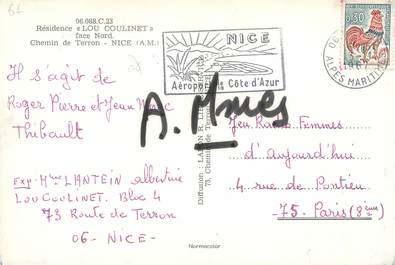 06.088.C.23
Résidence « LOU COULINET »
face Nord.
Chemin de Terron - NICE (A.M.)
Il s'agit de
Roger Pierre et Jean Marc
Thibault
Exp: Mme LANTEIN albertine
LOU COULINET. Bloc 4
73 Route de Terron
06 - NICE -
NICE
Aéroport de Côte d'Azur
0,30
ALPES MARITIMES
A. Mmes
Jeu Radio Femmes
d'aujourd'hui
4 rue de Pontieu
-75- Paris (8ème)
Normocolor